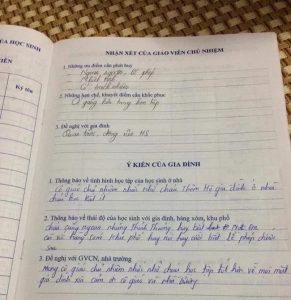 ỦA HỌC SINH
IÊN
Ký tên
NHẬN XÉT CỦA GIÁO VIÊN CHỦ NHIỆM
1. Những ưu điểm cần phát huy
Ngoan ngoãn, lễ phép
Nhiệt tình
Có trách nhiệm
2. Những hạn chế, khuyết điểm cần khắc phục
Cố gắng hơn trong học tập
3. Đề nghị với gia đình
Quan tâm, động viên HS
Ý KIẾN CỦA GIA ĐÌNH
1. Thông báo về tình hình học tập của học sinh ở nhà
Cô giáo chủ nhiệm nhắc nhở cháu thêm gia đình ở nhà
cháu học
2. Thông báo về thái độ của học sinh với gia đình, hàng xóm, khu phố
cháu cũng ngoan nhưng thỉnh thoảng hay
còn với hàng xóm khu phố hay nơi lễ phép
3. Đề nghị với GVCN, nhà trường
Mong cô giáo chủ nhiệm nhắc nhở cháu học tập tốt hơn về mọi mặt
gia đình xin cảm ơn cô giáo và nhà trường